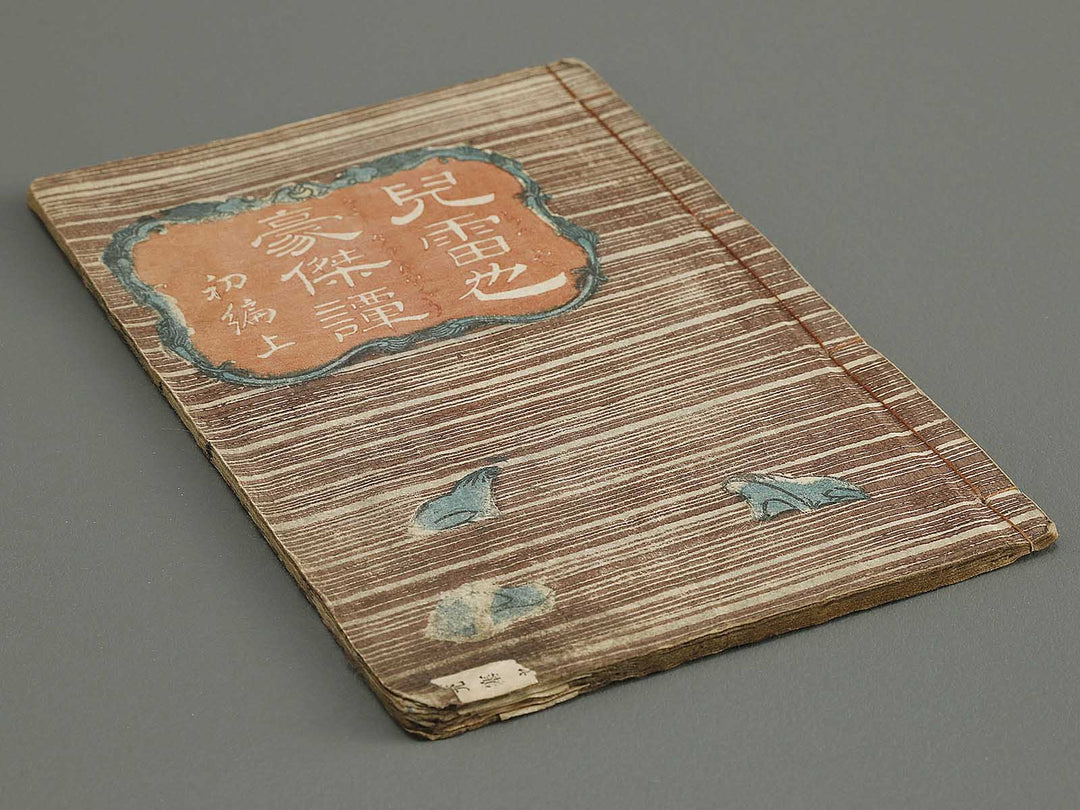 兒雷也
豪傑譚
初編上